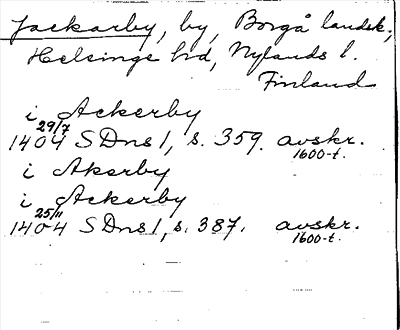 Jackarby, by, Borgå landsk.,
Helsinge hd, Nylands l.
Finland
i Ackerby
1404 29/7 SDns 1, s. 359. avskr. 1600-t.
i Akerby
i Ackerby
1404 25/11 SDns 1, s. 387. avskr. 1600-t.